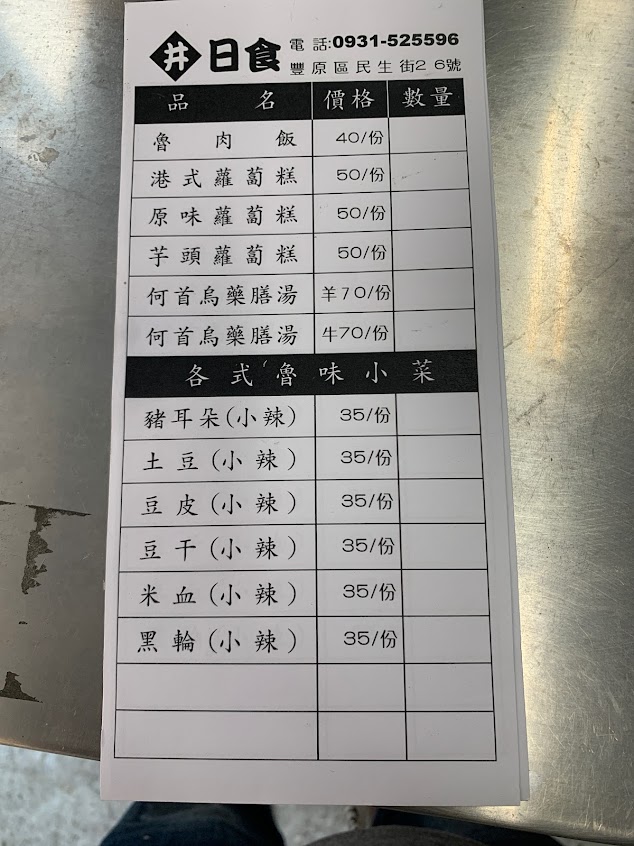 井 日食 電話:0931-525596
豐原區民生街26號
品名 價格 數量
魯肉飯 40/份
港式蘿蔔糕 50/份
原味蘿蔔糕 50/份
芋頭蘿蔔糕 50/份
何首烏藥膳湯 羊70/份
何首烏藥膳湯 牛70/份
各式魯味小菜
豬耳朵(小辣) 35/份
土豆(小辣) 35/份
豆皮(小辣) 35/份
豆干(小辣) 35/份
米血(小辣) 35/份
黑輪(小辣) 35/份